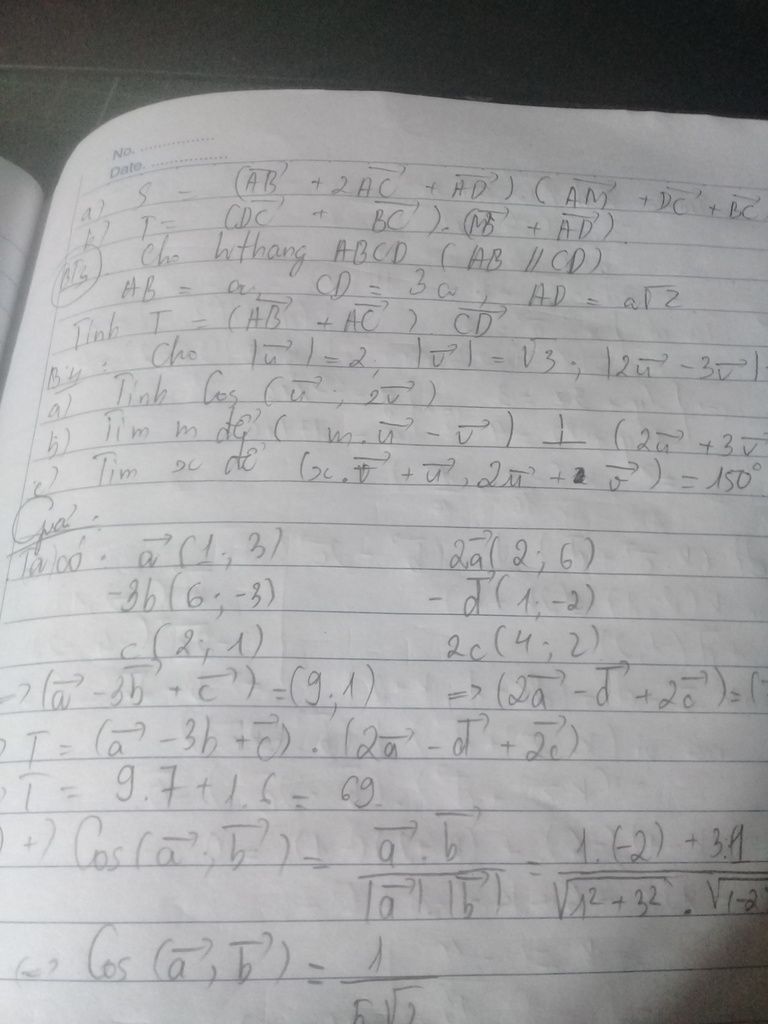 No. ...............
Date. ...............
a) S = (AB→ + 2AC→ + AD→).(AM→ + DC→ + BC→
b) T = (DC→ + BC→).(MB→ + AD→).
Cho hthang ABCD (AB // CD)
AB = a, CD = 3a, AD = a√2
Tính T = (AB→ + AC→) CD→
B4: Cho |u→| = 2; |v→| = √3; |2u→ - 3v→|
a) Tính Cos (u→; 2v→)
b) Tìm m để (m.u→ - v→) ⊥ (2u→ + 3v→
c) Tìm x để (x.v→ + u→, 2u→ + v→) = 150°
Giải:
Ta có: a→(1; 3) 2a→(2; 6)
-3b(6; -3) -d→(1; -2)
c(2; 1) 2c(4; 2)
=> (a→ - 3b→ + c→) = (9; 1) => (2a→ - d→ + 2c→) = (
T = (a→ - 3b + c→) . (2a→ - d→ + 2c→)
T = 9.7 + 1.6 = 69.
+) Cos(a→; b→) = a→.b→ / |a→|.|b→| = 1.(-2) + 3.1 / √1² + 3² . √(-2)
(=> Cos (a→, b→) = 1 / 5√2